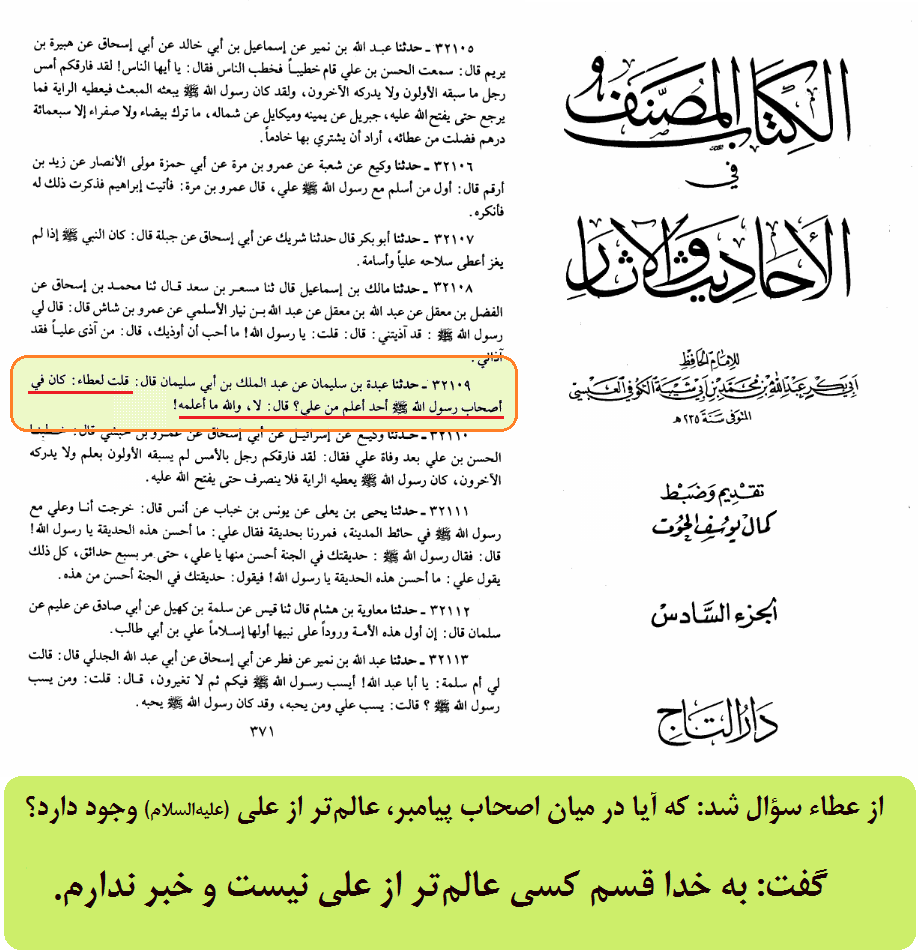 الكتاب المصنف
في
الأحاديث والآثار
للإمام الحافظ
أبي بكر عبد الله بن محمد بن أبي شيبة الكوفي العبسي
المتوفى سنة ٢٣٥ هـ
تقديم وضبط
كمال يوسف الحوت
الجزء السادس
دار التاج
٣٢١٠٥ ـ حدثنا عبد الله بن نمير عن إسماعيل بن أبي خالد عن أبي إسحاق عن هبيرة بن
يريم قال: سمعت الحسن بن علي قام خطيباً فخطب الناس فقال: يا أيها الناس! لقد فارقكم أمس
رجل ما سبقه الأولون ولا يدركه الآخرون، ولقد كان رسول الله ﷺ يبعثه المبعث فيعطيه الراية فما
يرجع حتى يفتح الله عليه، جبريل عن يمينه وميكايل عن شماله، ما ترك بيضاء ولا صفراء إلا سبعمائة
درهم فضلت من عطائه، أراد أن يشتري بها خادماً.
٣٢١٠٦ ـ حدثنا وكيع عن شعبة عن عمرو بن مرة عن أبي حمزة مولى الأنصار عن زيد بن
أرقم قال: أول من أسلم مع رسول الله ﷺ علي، قال عمرو بن مرة: فأتيت إبراهيم فذكرت ذلك له
فأنكره.
٣٢١٠٧ ـ حدثنا أبو بكر قال حدثنا شريك عن أبي إسحاق عن جبلة قال: كان النبي ﷺ إذا لم
يغز أعطى سلاحه علياً وأسامة.
٣٢١٠٨ ـ حدثنا مالك بن إسماعيل قال ثنا مسعر بن سعد قال ثنا محمد بن إسحاق عن
الفضل بن معقل عن عبد الله بن معقل عن عبد الله بن نيار الأسلمي عن عمرو بن شاش قال: قال لي
رسول الله ﷺ : قد آذيتني: قال: قلت: يا رسول الله! ما أحب أن أوذيك، قال: من آذى علياً فقد
آذاني.
٣٢١٠٩ ـ حدثنا عبدة بن سليمان عن عبد الملك بن أبي سليمان قال: قلت لعطاء: كان في
أصحاب رسول الله ﷺ أحد أعلم من علي؟ قال: لا، والله ما أعلمه!
٣٢١١٠ ـ حدثنا وكيع عن إسرائيل عن أبي إسحاق عن عمرو بن حبشي قال: خطبنا
الحسن بن علي بعد وفاة علي فقال: لقد فارقكم رجل بالأمس لم يسبقه الأولون بعلم ولا يدركه
الآخرون، كان رسول الله ﷺ يعطيه الراية فلا ينصرف حتى يفتح الله عليه.
٣٢١١١ ـ حدثنا يحيى بن يعلى عن يونس بن خباب عن أنس قال: خرجت أنا وعلي مع
رسول الله ﷺ في حائط المدينة، فمررنا بحديقة فقال علي: ما أحسن هذه الحديقة يا رسول الله!
قال: فقال رسول الله ﷺ : حديقتك في الجنة أحسن منها يا علي، حتى مر بسبع حدائق، كل ذلك
يقول علي: ما أحسن هذه الحديقة يا رسول الله! فيقول: حديقتك في الجنة أحسن من هذه.
٣٢١١٢ ـ حدثنا معاوية بن هشام قال ثنا قيس عن سلمة بن كهيل عن أبي صادق عن عليم عن
سلمان قال: إن أول هذه الأمة وروداً على نبيها أولها إسلاماً علي بن أبي طالب.
٣٢١١٣ ـ حدثنا عبد الله بن نمير عن فطر عن أبي إسحاق عن أبي عبد الله الجدلي قال: قالت
لي أم سلمة: يا أبا عبد الله! أيسب رسول الله ﷺ فيكم ثم لا تغيرون، قال: قلت: ومن يسب
رسول الله ﷺ ؟ قالت: يسب علي ومن يحبه، وقد كان رسول الله ﷺ يحبه.
٣٧١
از عطاء سؤال شد: که آیا در میان اصحاب پیامبر، عالم‌تر از علی (علیه‌السلام) وجود دارد؟
گفت: به خدا قسم کسی عالم‌تر از علی نیست و خبر ندارم.